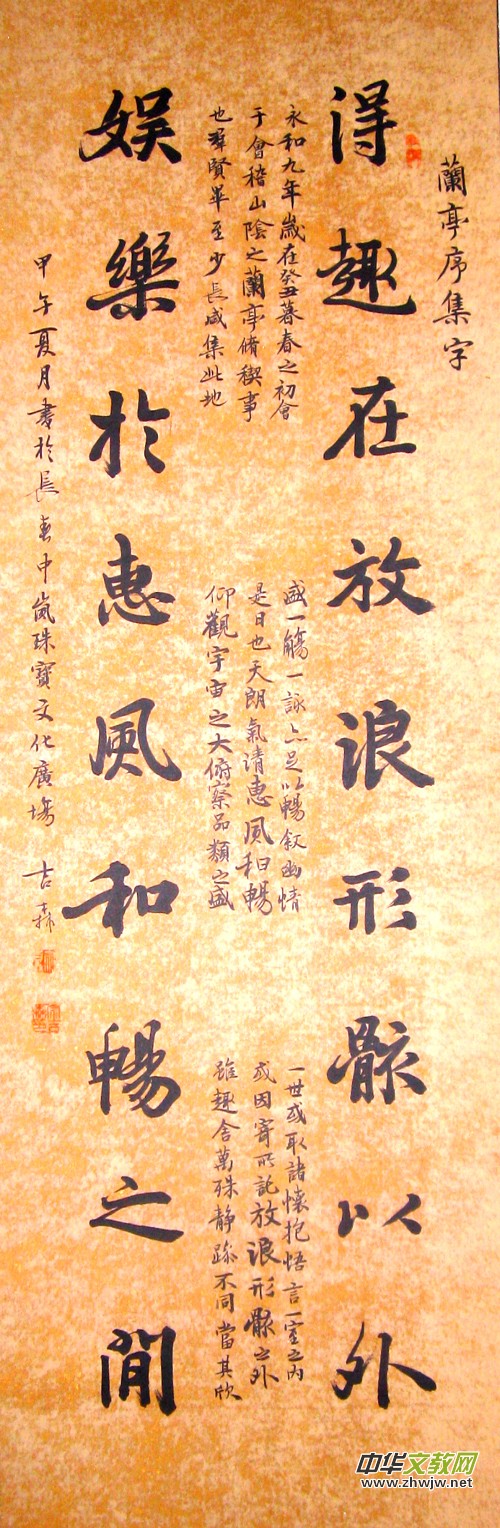 蘭亭序集字
得趣在放浪形骸以外
永和九年歲在癸丑暮春之初會
于會稽山陰之蘭亭脩稧事
也羣賢畢至少長咸集此地
盛一觴一詠亦足以暢敘幽情
是日也天朗氣清惠風和暢
仰觀宇宙之大俯察品類之盛
一世或取諸懷抱悟言一室之内
或因寄所託放浪形骸之外
雖趣舍萬殊静躁不同當其欣
娱樂於惠風和暢之間
甲午夏月書於長春中嵐珠寶文化廣場 吉森
中华文教网
www.zhwjw.net